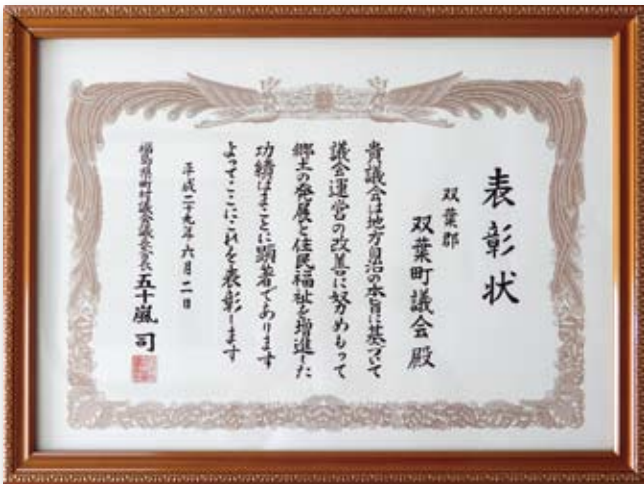 表彰状
双葉郡
双葉町議会殿
貴議会は地方自治の本旨に基づいて
議会運営の改善に努めもって
郷土の発展と住民福祉を増進した
功績はまことに顕著であります
よってここにこれを表彰します
平成二十九年六月二日
福島県町村議会議長会長 五十嵐 司